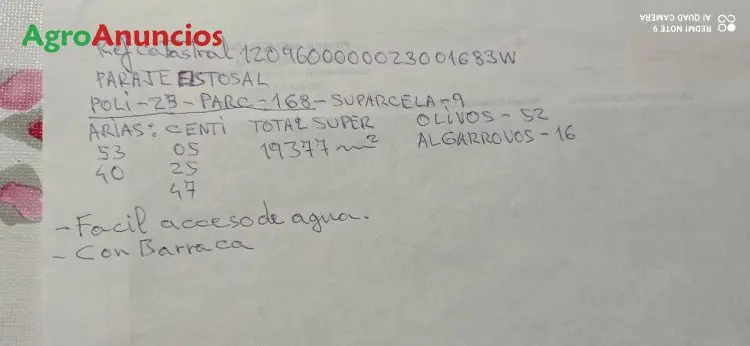 AgroAnuncios
REDMI NOTE 9
AI QUAD CAMERA
Ref Catastral 12096000000023001683W
PARAJE ESTOSAL
POLI-23-PARC=168-SUPARCELA=9
ARIAS: CENTI TOTAL SUPER OLIVOS-52
53 05 19377 m² ALGARROVOS-16
40 25
47
-Facil acceso de agua.
-Con Barraca